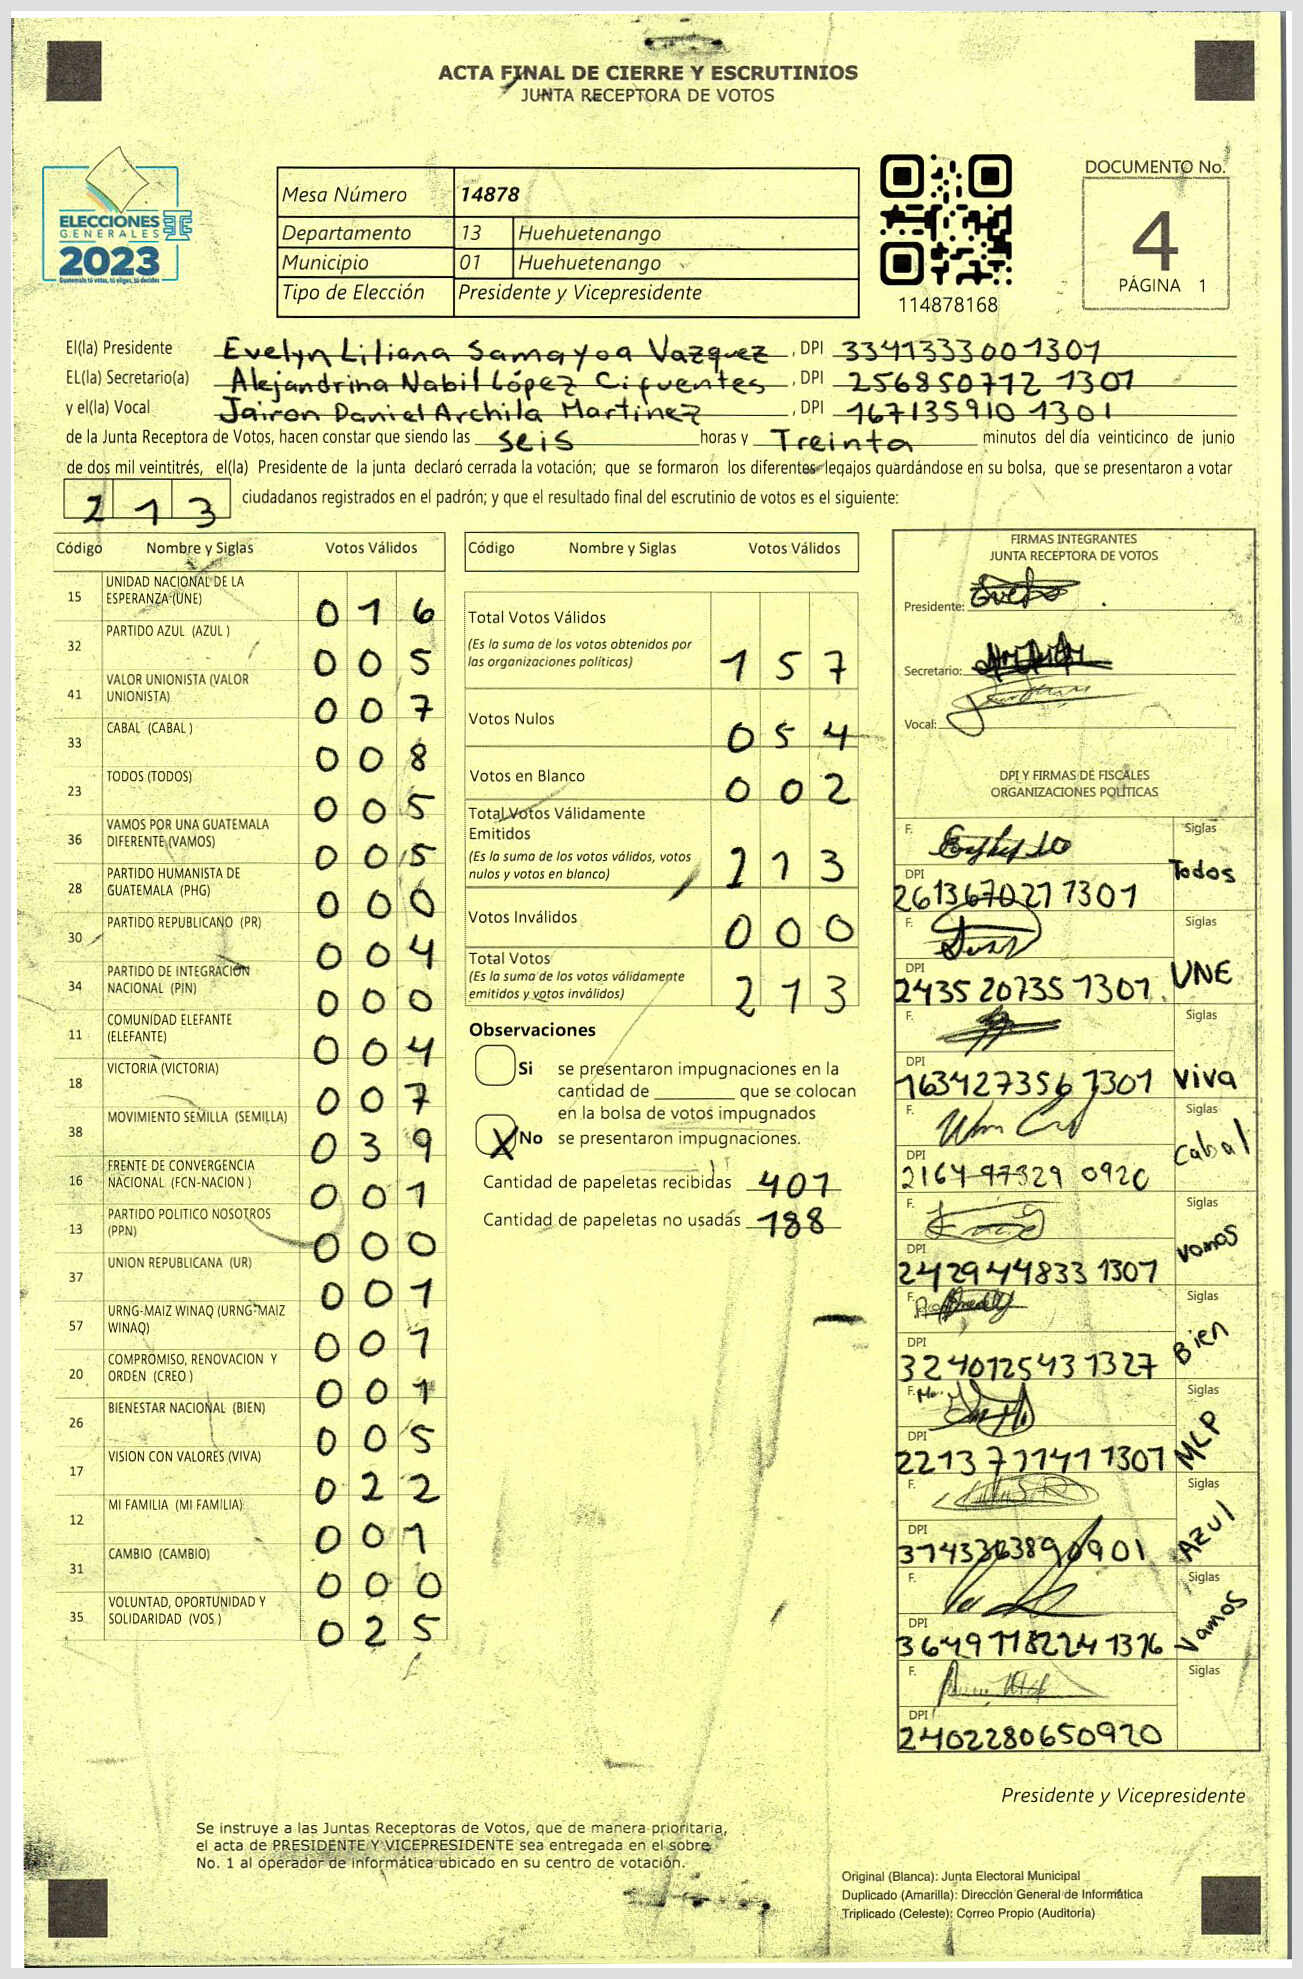 ACTA FINAL DE CIERRE Y ESCRUTINIOS
JUNTA RECEPTORA DE VOTOS
ELECCIONES
GENERALES
2023
Guatemala tú votas, tú eliges, tú decides
Mesa Número 14878
Departamento 13 Huehuetenango
Municipio 01 Huehuetenango
Tipo de Elección Presidente y Vicepresidente
114878168
DOCUMENTO No.
4
PÁGINA 1
El(la) Presidente Evelyn Liliana Samayoa Vazquez, DPI 3341333001301
EL(la) Secretario(a) Alejandrina Nabil López Cifuentes, DPI 256850712 1301
y el(la) Vocal Jairon Daniel Archila Martinez, DPI 167135910 1301
de la Junta Receptora de Votos, hacen constar que siendo las seis horas y Treinta minutos del día veinticinco de junio
de dos mil veintitrés, el(la) Presidente de la junta declaró cerrada la votación; que se formaron los diferentes legajos guardándose en su bolsa, que se presentaron a votar
2 1 3 ciudadanos registrados en el padrón; y que el resultado final del escrutinio de votos es el siguiente:
Código Nombre y Siglas Votos Válidos
15 UNIDAD NACIONAL DE LA ESPERANZA (UNE) 0 1 6
32 PARTIDO AZUL (AZUL ) 0 0 5
41 VALOR UNIONISTA (VALOR UNIONISTA) 0 0 7
33 CABAL (CABAL ) 0 0 8
23 TODOS (TODOS) 0 0 5
36 VAMOS POR UNA GUATEMALA DIFERENTE (VAMOS) 0 0 5
28 PARTIDO HUMANISTA DE GUATEMALA (PHG) 0 0 0
30 PARTIDO REPUBLICANO (PR) 0 0 4
34 PARTIDO DE INTEGRACION NACIONAL (PIN) 0 0 0
11 COMUNIDAD ELEFANTE (ELEFANTE) 0 0 4
18 VICTORIA (VICTORIA) 0 0 7
38 MOVIMIENTO SEMILLA (SEMILLA) 0 3 9
16 FRENTE DE CONVERGENCIA NACIONAL (FCN-NACION ) 0 0 1
13 PARTIDO POLITICO NOSOTROS (PPN) 0 0 0
37 UNION REPUBLICANA (UR) 0 0 1
57 URNG-MAIZ WINAQ (URNG-MAIZ WINAQ) 0 0 1
20 COMPROMISO, RENOVACION Y ORDEN (CREO ) 0 0 1
26 BIENESTAR NACIONAL (BIEN) 0 0 5
17 VISION CON VALORES (VIVA) 0 2 2
12 MI FAMILIA (MI FAMILIA) 0 0 1
31 CAMBIO (CAMBIO) 0 0 0
35 VOLUNTAD, OPORTUNIDAD Y SOLIDARIDAD (VOS ) 0 2 5
Código Nombre y Siglas Votos Válidos
Total Votos Válidos
(Es la suma de los votos obtenidos por
las organizaciones políticas) 1 5 7
Votos Nulos 0 5 4
Votos en Blanco 0 0 2
Total Votos Válidamente
Emitidos
(Es la suma de los votos válidos, votos
nulos y votos en blanco) 2 1 3
Votos Inválidos 0 0 0
Total Votos
(Es la suma de los votos válidamente
emitidos y votos inválidos) 2 1 3
Observaciones
Si se presentaron impugnaciones en la
cantidad de ________ que se colocan
en la bolsa de votos impugnados
X No se presentaron impugnaciones.
Cantidad de papeletas recibidas 401
Cantidad de papeletas no usadas 188
FIRMAS INTEGRANTES
JUNTA RECEPTORA DE VOTOS
Presidente:
Secretario:
Vocal:
DPI Y FIRMAS DE FISCALES
ORGANIZACIONES POLÍTICAS
F. Siglas
DPI Todos
261367021 1301
F. Siglas
DPI UNE
2435 20735 1301
F. Siglas
DPI
163427356 1301 Viva
F. Siglas
DPI Cabal
2164 97329 0920
F. Siglas
DPI Vamos
2429 44833 1301
F. Siglas
DPI Bien
3240125431327
F. Siglas
DPI MLP
2213 71141 1301
F. Siglas
DPI Azul
F. Siglas
DPI Vamos
F. Siglas
DPI
2402280650920
Presidente y Vicepresidente
Se instruye a las Juntas Receptoras de Votos, que de manera prioritaria,
el acta de PRESIDENTE Y VICEPRESIDENTE sea entregada en el sobre
No. 1 al operador de informática ubicado en su centro de votación.
Original (Blanca): Junta Electoral Municipal
Duplicado (Amarilla): Dirección General de Informática
Triplicado (Celeste): Correo Propio (Auditoría)